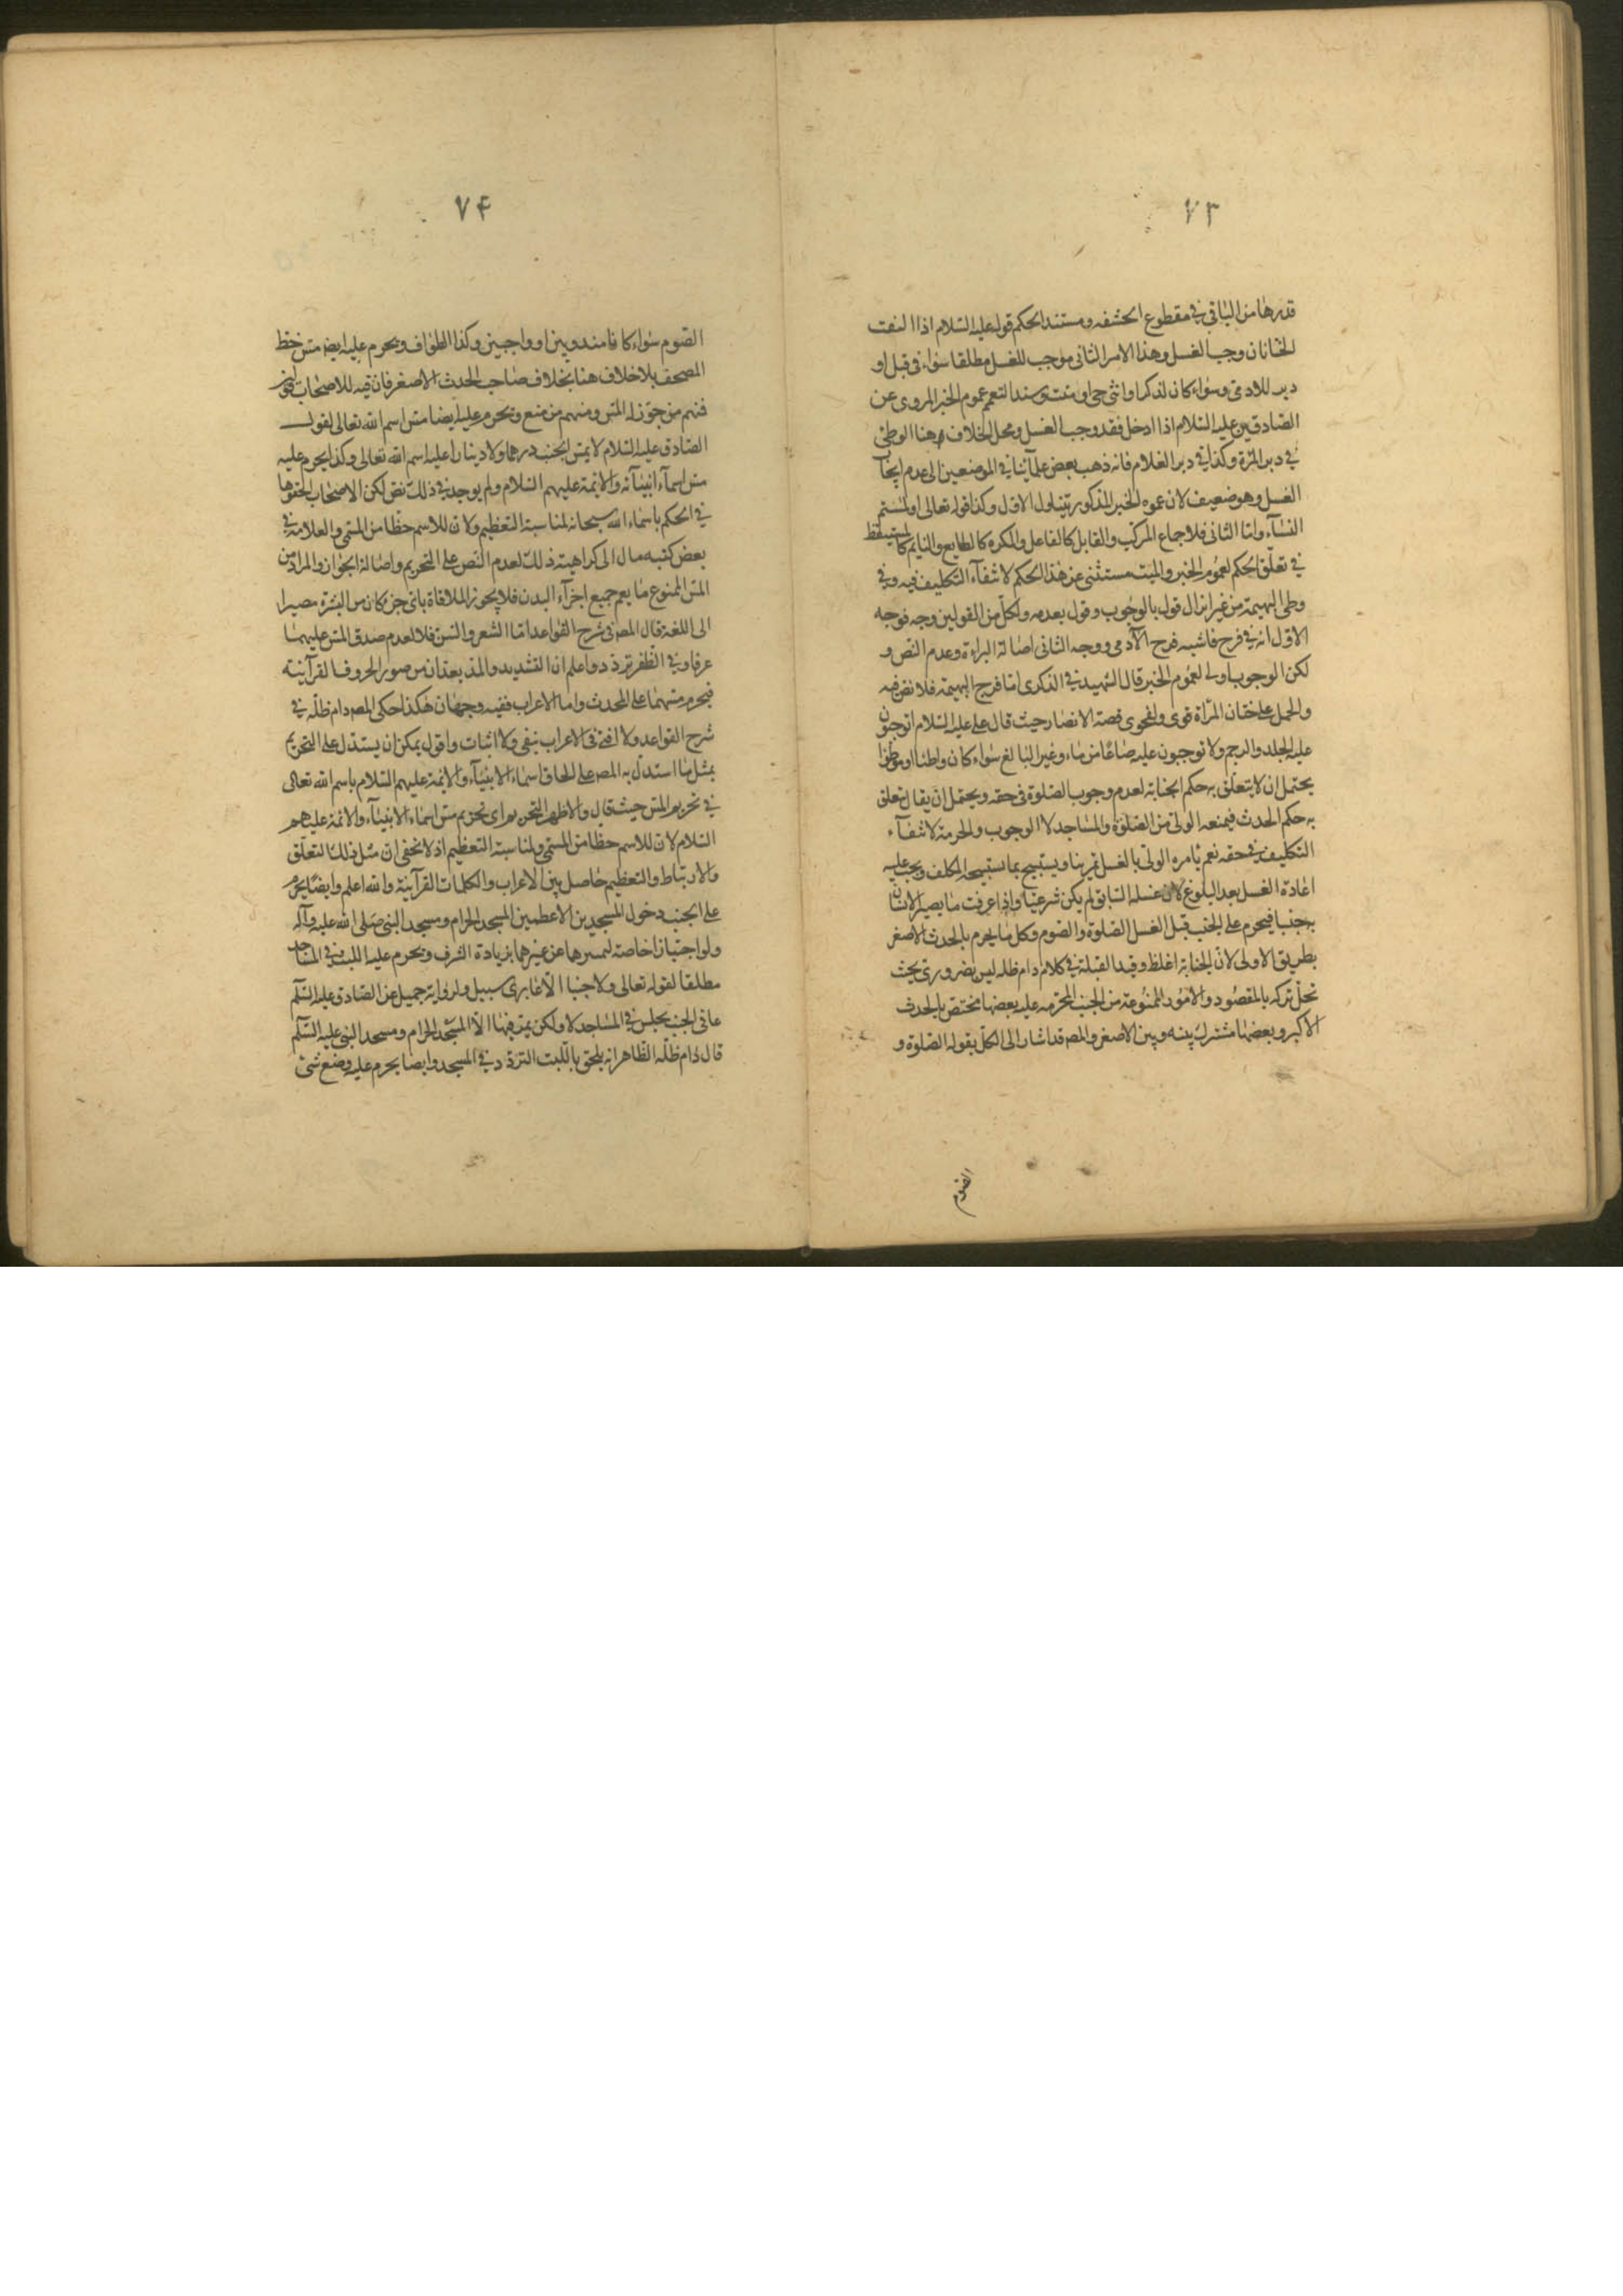 ٧٣
قدرها من الباقى فى مقطوع الحشفه ومستند الحكم قوله عليه السّلام اذا التفت
الختانان وجب الغسل وهذا الامر الثانى موجب للغسل مطلقا سواء فى قبل او
دبر للادمى وسواء كان لذكر او انثى حى او ميت وسند التعمم عموم الخبر المروى عن
الصّادقين عليه السّلام اذا ادخل فقد وجب الغسل ومحل الخلاف هنا الوطى
فى دبر المرّة وكذا فى دبر الغلام فانه ذهب بعض علمآئنا فى الموضعين الى عدم ايجاب
الغسل وهو ضعيف لان عموم الخبر المذكور يتناول الاوّل وكذا قوله تعالى او لمستم
النسآء وامّا الثانى فلاجماع المركّب والقابل كالفاعل والمكره كالطايع والنايم كالمستيقظ
فى تعلّق الحكم لعموم الخبر والميّت مستثنى عن هذا الحكم لانتفآء التكليف فيه وفى
وطى البهيمة من غير انزال قول بالوجوب وقول بعدمه ولكلّ من القولين وجه فوجه
الاوّل انه فى فرج فاشبه فرج الآدمى ووجه الثانى اصالة البراءة وعدم النص و
لكن الوجوب اولى لعموم الخبر قال الشهيد فى الذكرى امّا فرج البهيمة فلا نص فيه
والحمل على ختان المرأة قوى ولفحوى قصة الانصار حيث قال على عليه السّلام اتوجبون
عليه الجلد والرجم ولا توجبون عليه صاعًا من ماء وغير البالغ سواء كان واطئا او موطؤا
يحتمل ان لا يتعلّق به حكم الجنابة لعدم وجوب الصّلوة فى حقه ويحتمل ان يقال تعلق
به حكم الحدث فيمنعه الولى من الصّلوة والمساجد لا الوجوب والحرمة لانتفآء
التكليف فى حقه نعم يامره الولى بالغسل تمرينا ويستبيح بما يستبيحه المكلف ويجب عليه
اعادة الغسل بعد البلوغ لان غسله السّابق لم يكن شرعيّا واذا عرفت ما يصير الانسان
به جنبا فيحرم على الجنب قبل الغسل الصّلوة والصّوم وكل ما يحرم بالحدث الأصغر
بطريق الاولى لانّ الجنابة اغلظ وقيد القبلة فى كلام دام ظله ليس بضرورى بحيث
تخلّ تركه بالمقصود والامور الممنوعة من الجنب المحرّمه عليه بعضها مختص بالحدث
الاكبر وبعضها مشترك بينه وبين الاصغر والمصـ قد اشار الى الكلّ بقوله الصّلوة و
الصّوم
٧۴
الصّوم سواء كانا مندوبين او واجبين وكذا الطّواف ويحرم عليه ايضا مسّ خط
المصحف بلا خلاف هنا بخلاف صاحب الحدث الاصغر فان فيه للاصحاب قولين
فمنهم من جوّز له المسّ ومنهم من منع ويحرم عليه ايضا مسّ اسم الله تعالى لقول
الصّادق عليه السّلام لا يمسّ الجنب درهما ولا دينارا عليه اسم الله تعالى وكذا يحرم عليه
مسّ اسمآء انبيآئه والائمة عليهم السّلام ولم يوجد فى ذلك نص لكن الاصحاب الحقوها
فى الحكم باسماء الله سبحانه لمناسبة التعظيم ولانّ للاسم حظّا من المسمّى والعلامة فى
بعض كتبه مال الى كراهيته ذلك لعدم النّص على التحريم واصالة الجواز والمراد من
المسّ الممنوع ما يعم جميع اجزآء البدن فلا يجوز الملاقاة باى جزء كان من البشرة مصيرا
الى اللغة قال المصـ فى شرح القواعد امّا الشعر والسّن فلا لعدم صدق المسّ عليهما
عرفا وفى الظّفر تردّد واعلم انّ التشديد والمدّ يعدّان من صور الحروف القرآنيّة
فيحرم مسّهما على المحدث واما الاعراب ففيه وجهان هكذا حكى المصـ دام ظلّه فى
شرح القواعد ولا افتى فى الاعراب بنفى ولا اثبات واقول يمكن ان يستدلّ على التحريم
بمثل ما استدلّ به المصـ على الحاق اسماء الانبيآء والائمة عليهم السّلام باسم الله تعالى
فى تحريم المسّ حيث قال والاظهر التحريم اى تحريم مسّ اسماء الانبيآء والائمة عليهم
السّلام لان للاسم حظا من المسمّى ولمناسبة التعظيم اذ لا يخفى ان مثل ذلك التعلّق
والارتباط والتعظيم حاصل بين الاعراب والكلمات القرآنية والله اعلم وايضًا يحرم
على الجنب دخول المسجدين الاعظمين المسجد الحرام ومسجد النبى صلى الله عليه وآله
ولو اجتيازا خاصة لتميزهما عن غيرهما بزيادة الشرف ويحرم عليه اللبث فى المساجد
مطلقا لقوله تعالى ولا جنبا الّا عابرى سبيل ولرواية جميل عن الصّادق عليه السّلم
عافى الجنب يجلس فى المساجد لا ولكن يمرّ فيها الّا المسجد الحرام ومسجد النبى عليه السّلم
قال دام ظلّه الظّاهر انه يلحق باللّبث التردّد فى المسجد وايضا يحرم عليه وضع شئ